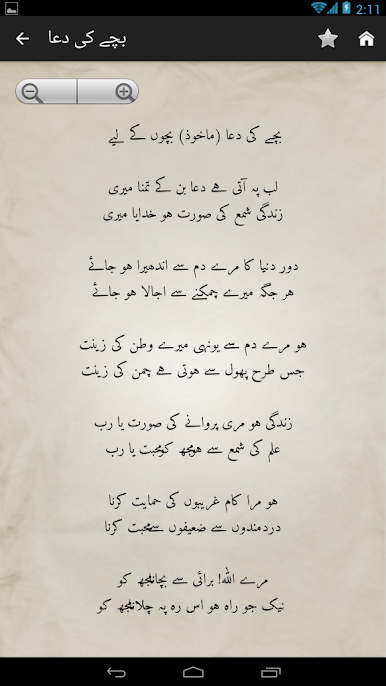 2:11
بچے کی دعا
بچے کی دعا (ماخوذ) بچوں کے لیے
لب پہ آتی ہے دعا بن کے تمنا میری
زندگی شمع کی صورت ہو خدایا میری
دور دنیا کا مرے دم سے اندھیرا ہو جائے
ہر جگہ میرے چمکنے سے اجالا ہو جائے
ہو مرے دم سے یونہی میرے وطن کی زینت
جس طرح پھول سے ہوتی ہے چمن کی زینت
زندگی ہو مری پروانے کی صورت یا رب
علم کی شمع سے ہو مجھ کو محبت یا رب
ہو مرا کام غریبوں کی حمایت کرنا
دردمندوں سے ضعیفوں سے محبت کرنا
مرے اللہ! برائی سے بچانا مجھ کو
نیک جو راہ ہو اس رہ پہ چلانا مجھ کو